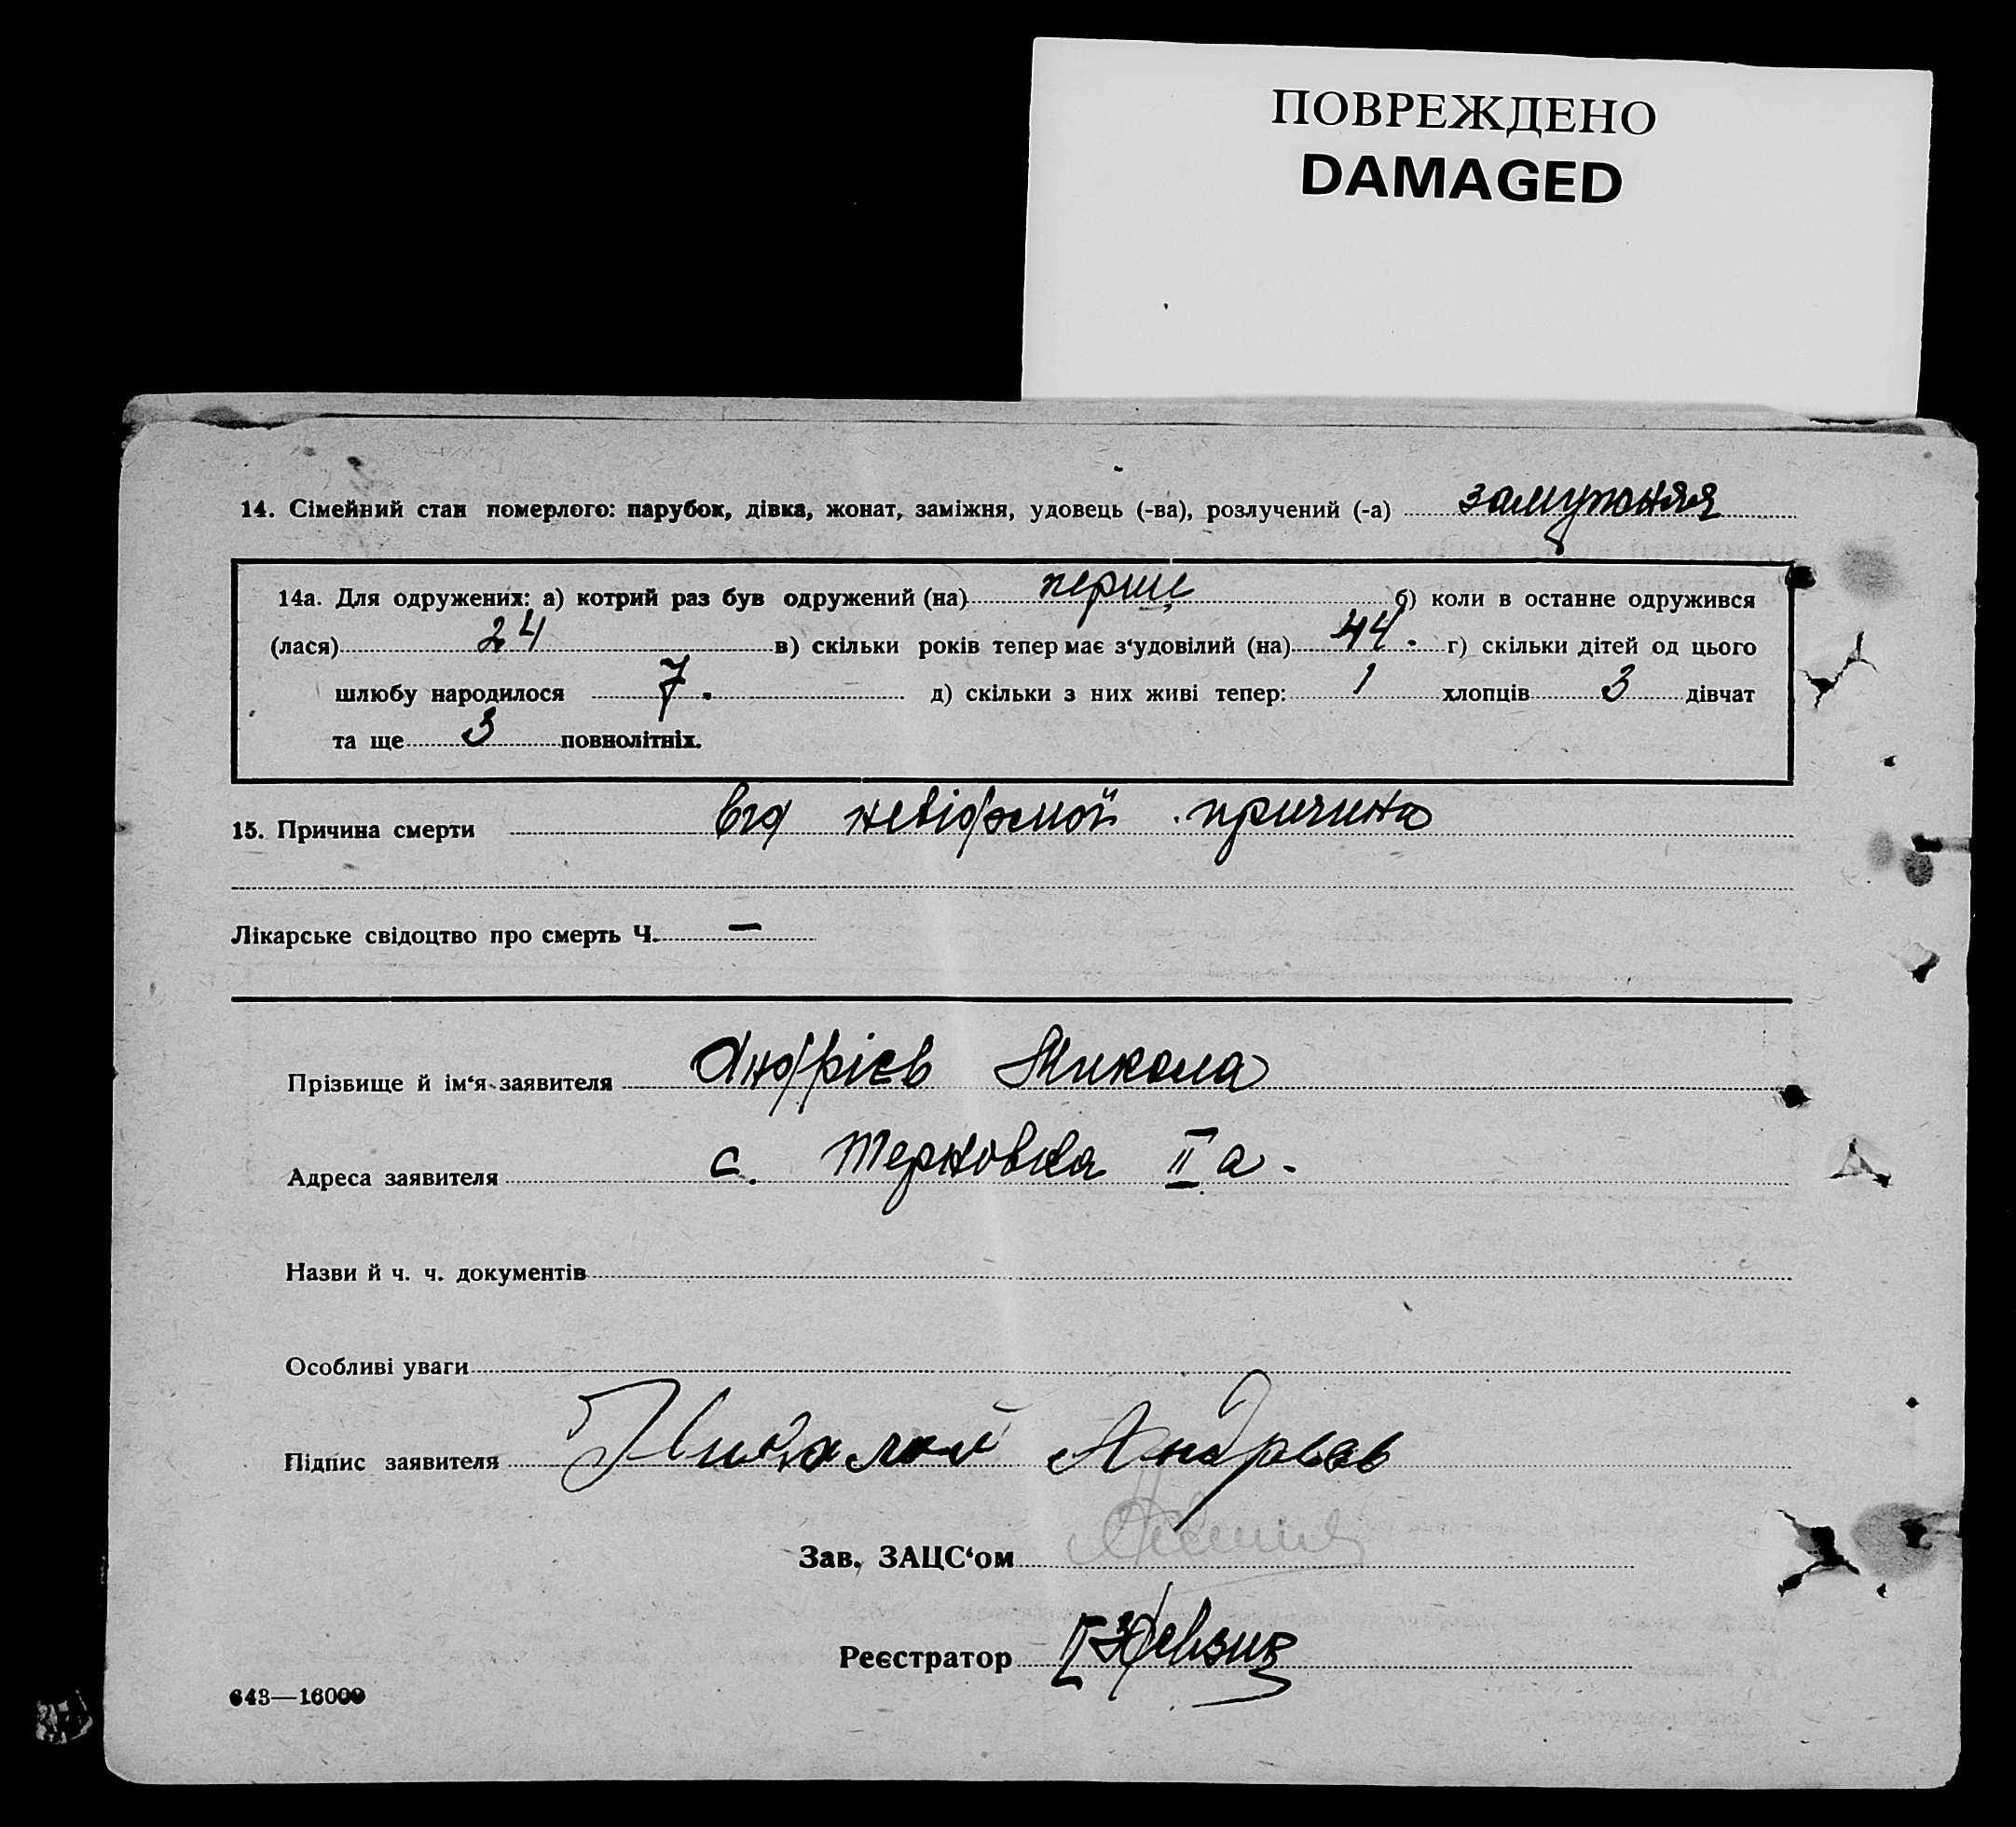 ПОВРЕЖДЕНО
DAMAGED
14. Сімейний стан померлого: парубок, дівка, жонат, заміжня, удовець (-ва), розлучений (-а) замужняя
14а. Для одружених: а) котрий раз був одружений (на) перше б) коли в останне одружився
(лася) 24 в) скільки років тепер має з‘удовілий (на) 44. г) скільки дітей од цього
шлюбу народилося 7. д) скільки з них живі тепер: 1 хлопців 3 дівчат
та ще 3 повнолітніх.
15. Причина смерти від невідомой причина
Лікарське свідоцтво про смерть Ч. —
Прізвище й ім‘я заявителя Андрієв Микола
Адреса заявителя с. Терновка II а.
Назви й ч. ч. документів
Особливі уваги
Підпис заявителя Николай Андреев
Зав. ЗАЦС‘ом
Реєстратор
643—16000